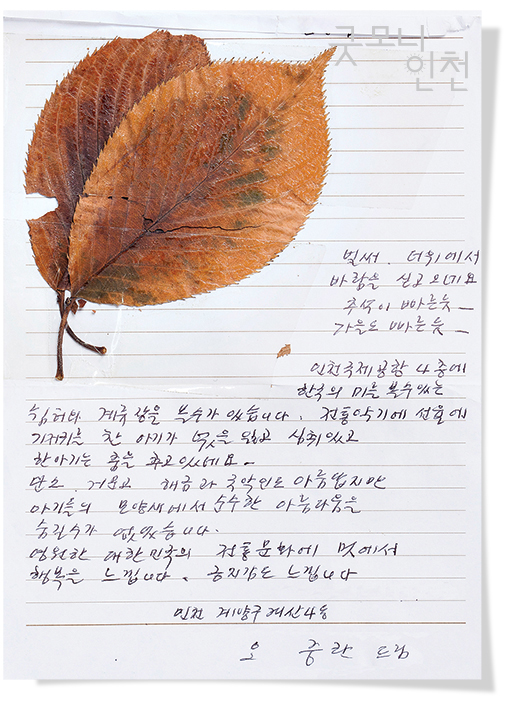 굿모닝
인천
벌써. 더위에서
바람을 싣고 오네요
추석이 빠른듯
가을도 빠른듯
인천국제공항 나 중에
한국의 미를 볼수있는
계류장을 볼수가 있습니다. 전통악기에 선율에
기저귀를 찬 아기가 넋을 잃고 심취있고
한아기는 춤을 추고 있네요.
단소. 거문고 해금과 국악인도 아름답지만
아기들의 모양새에서 순수한 아름다움을
숨길수가 없었습니다.
영원한 대한민국의 전통문화에 멋에서
행복을 느낍니다. 긍지감도 느낍니다
인천 계양구 계산4동
오 중란 드림